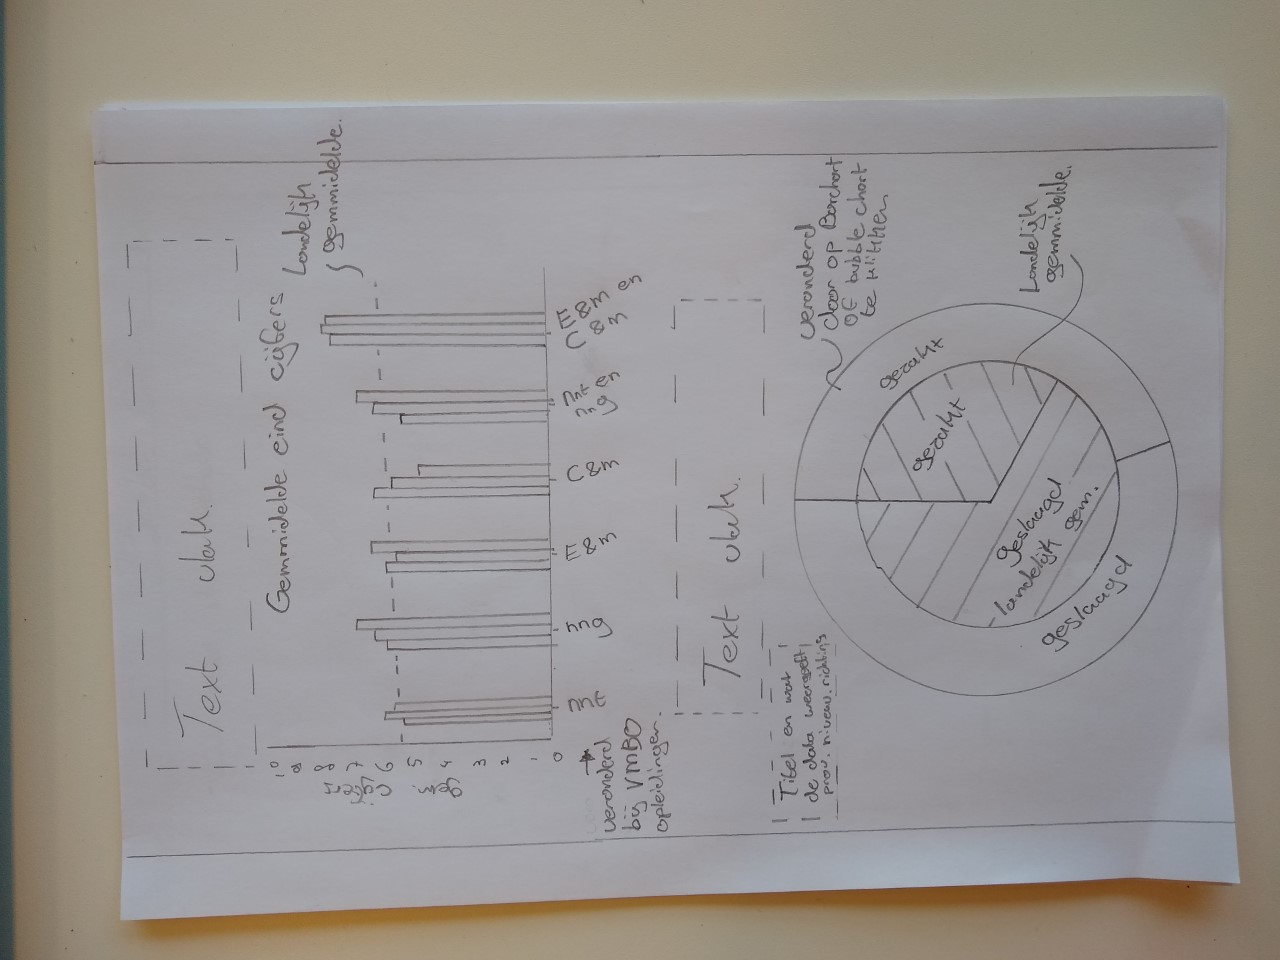 Text vlak.
Gemmidelde eind cijfers
Landelijk
gemmidelde.
gem. cijfers
10
9
8
7
6
5
4
3
2
1
0
nnt
nng
E&m
C&m
nnt en
nng
E&m en
C&m
veranderd
bij VMBO
opleidingen.
Text vlak.
Titel en wat
de data weergeeft
prov. niveau. richting
veranderd
door op Barchart
OF bubble chart
te klikken
gezakt
gezakt
geslaagd
landelijk gem.
geslaagd
Landelijk
gemmidelde.